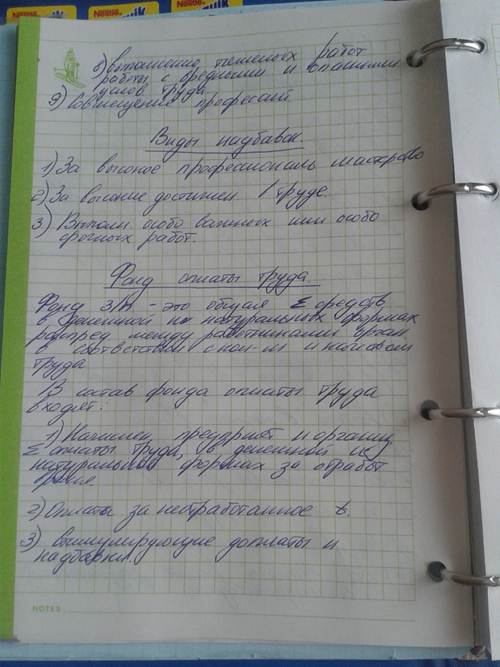 Nestle
Nesquik
8) выполнению тяжелых работ
работы с вредными и опасными
услов. труда.
9) Совмещение професий
Виды надбавок.
1) За высокое профессиональ мастерство
2) За высокие достижен. в труде.
3) Выполн. особо важных или особо
срочных работ.
Фонд оплаты труда.
Фонд З/п - это общая Σ средств
в денежной и натуральных формах
распред между работниками орган
в соответствии с кол-м и качеством
труда
В состав фонда оплаты труда
входят:
1) Начислен, предприят и организ
Σ оплаты труда, в денежной и
натуральной формах за отработ
время.
2) Оплаты за неотработанное в.
3) стимулирующие доплаты и
надбавки.
NOTES